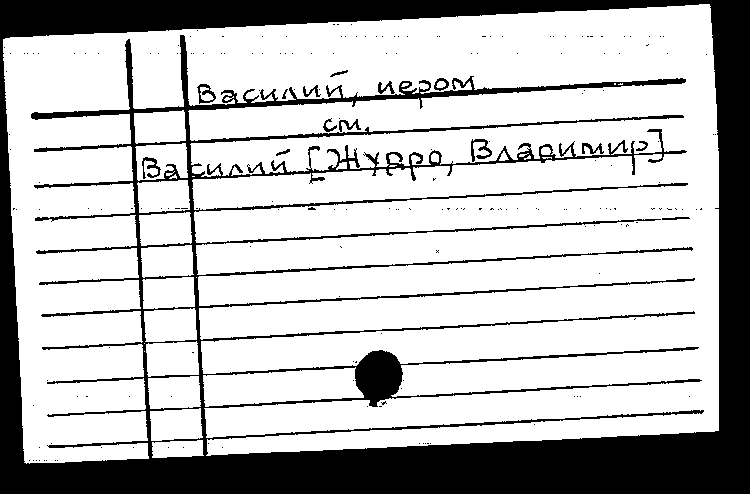 Василий, иером
см.
Василий [Журро, Владимир]